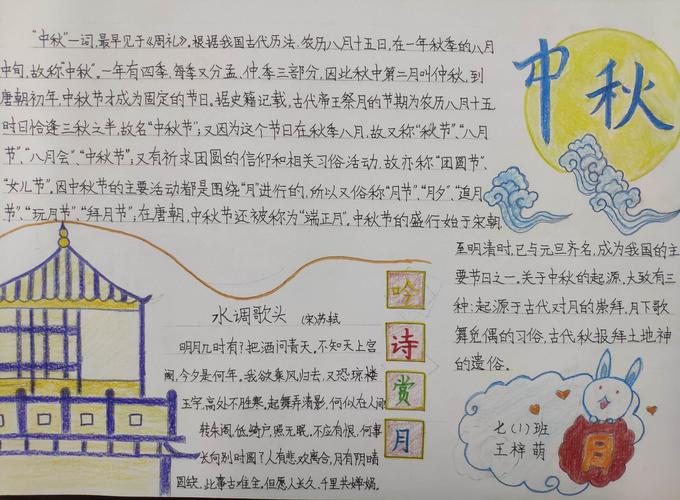 "中秋"一词，最早见于《周礼》。根据我国古代历法，农历八月十五日，在一年秋季的八月
中旬，故称"中秋"。一年有四季，每季又分孟、仲、季三部分，因此秋中第二月叫仲秋，到
唐朝初年，中秋节才成为固定的节日。据史籍记载，古代帝王祭月的节期为农历八月十五
时日恰逢三秋之半，故名"中秋节"；又因为这个节日在秋季八月，故又称"秋节"、"八月
节"、"八月会"、"中秋节"；又有祈求团圆的信仰和相关习俗活动，故亦称"团圆节"、
"女儿节"。因中秋节的主要活动都是围绕"月"进行的，所以又俗称"月节"、"月夕"、"追月
节"、"玩月节"、"拜月节"；在唐朝，中秋节还被称为"端正月"。中秋节的盛行始于宋朝
至明清时，已与元旦齐名，成为我国的主
要节日之一。关于中秋的起源，大致有三
种：起源于古代对月的崇拜，月下歌
舞觅偶的习俗，古代秋报拜土地神
的遗俗。
中秋
吟
诗
赏
月
水调歌头 (宋)苏轼
明月几时有？把酒问青天。不知天上宫
阙，今夕是何年。我欲乘风归去，又恐琼楼
玉宇，高处不胜寒。起舞弄清影，何似在人间
转朱阁，低绮户，照无眠。不应有恨，何事
长向别时圆？人有悲欢离合，月有阴晴
圆缺，此事古难全。但愿人长久，千里共婵娟。
七(1)班
王梓萌
月